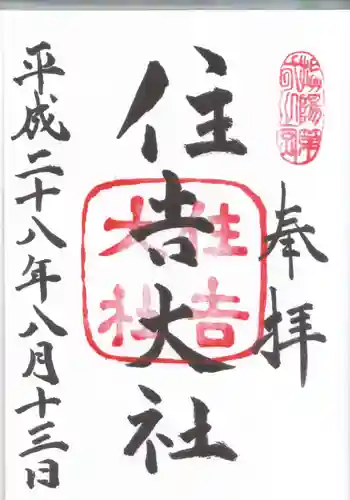 奉拝
住吉大社
住吉
大社
平成二十八年八月十三日